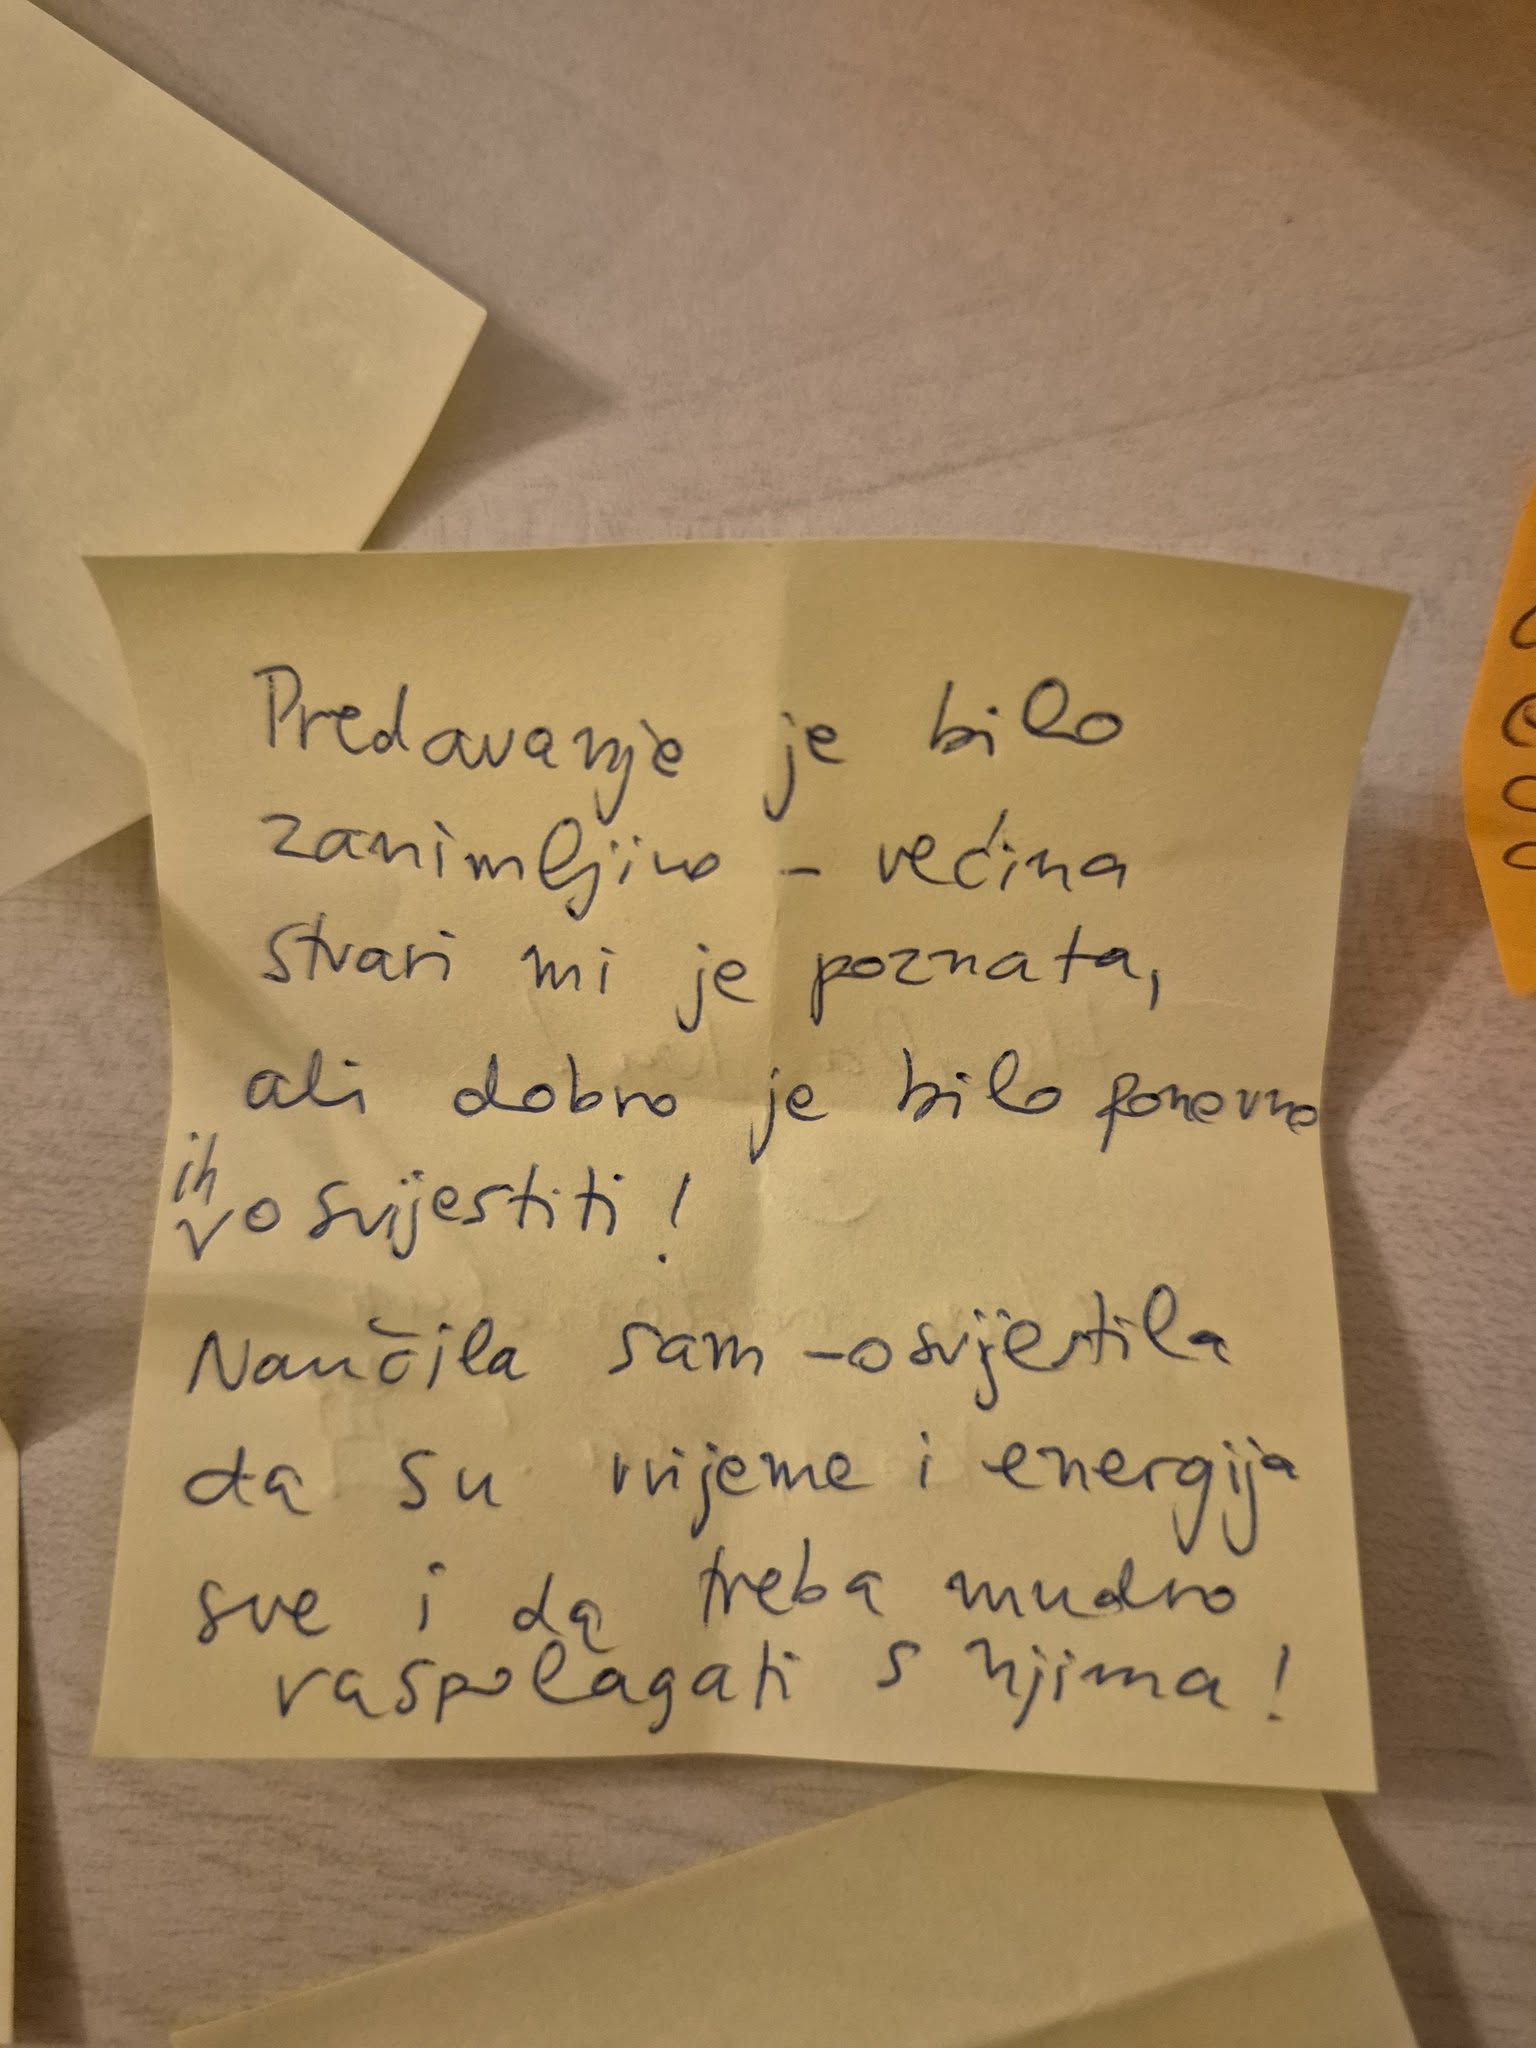 Predavanje je bilo
zanimljivo - većina
stvari mi je poznata,
ali dobro je bilo ponovno
ih
osvijestiti!
Naučila sam - osvijestila
da su vrijeme i energija
sve i da treba mudro
raspolagati s njima!